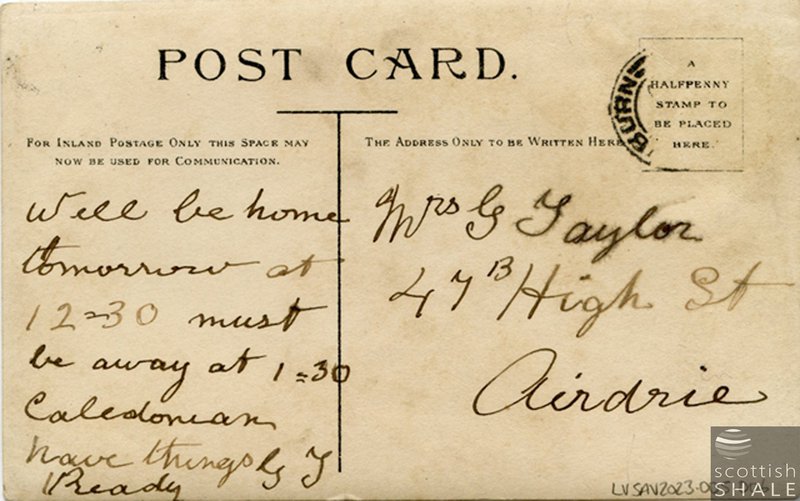 POST CARD.
FOR INLAND POSTAGE ONLY THIS SPACE MAY
NOW BE USED FOR COMMUNICATION.
THE ADDRESS ONLY TO BE WRITTEN HERE
A
HALFPENNY
STAMP TO
BE PLACED
HERE.
BURN
Will be home
tomorrow at
12=30 must
be away at 1=30
Caledonian
have things G T
Ready
Mrs G Taylor
47B High St
Airdrie
scottish
SHALE